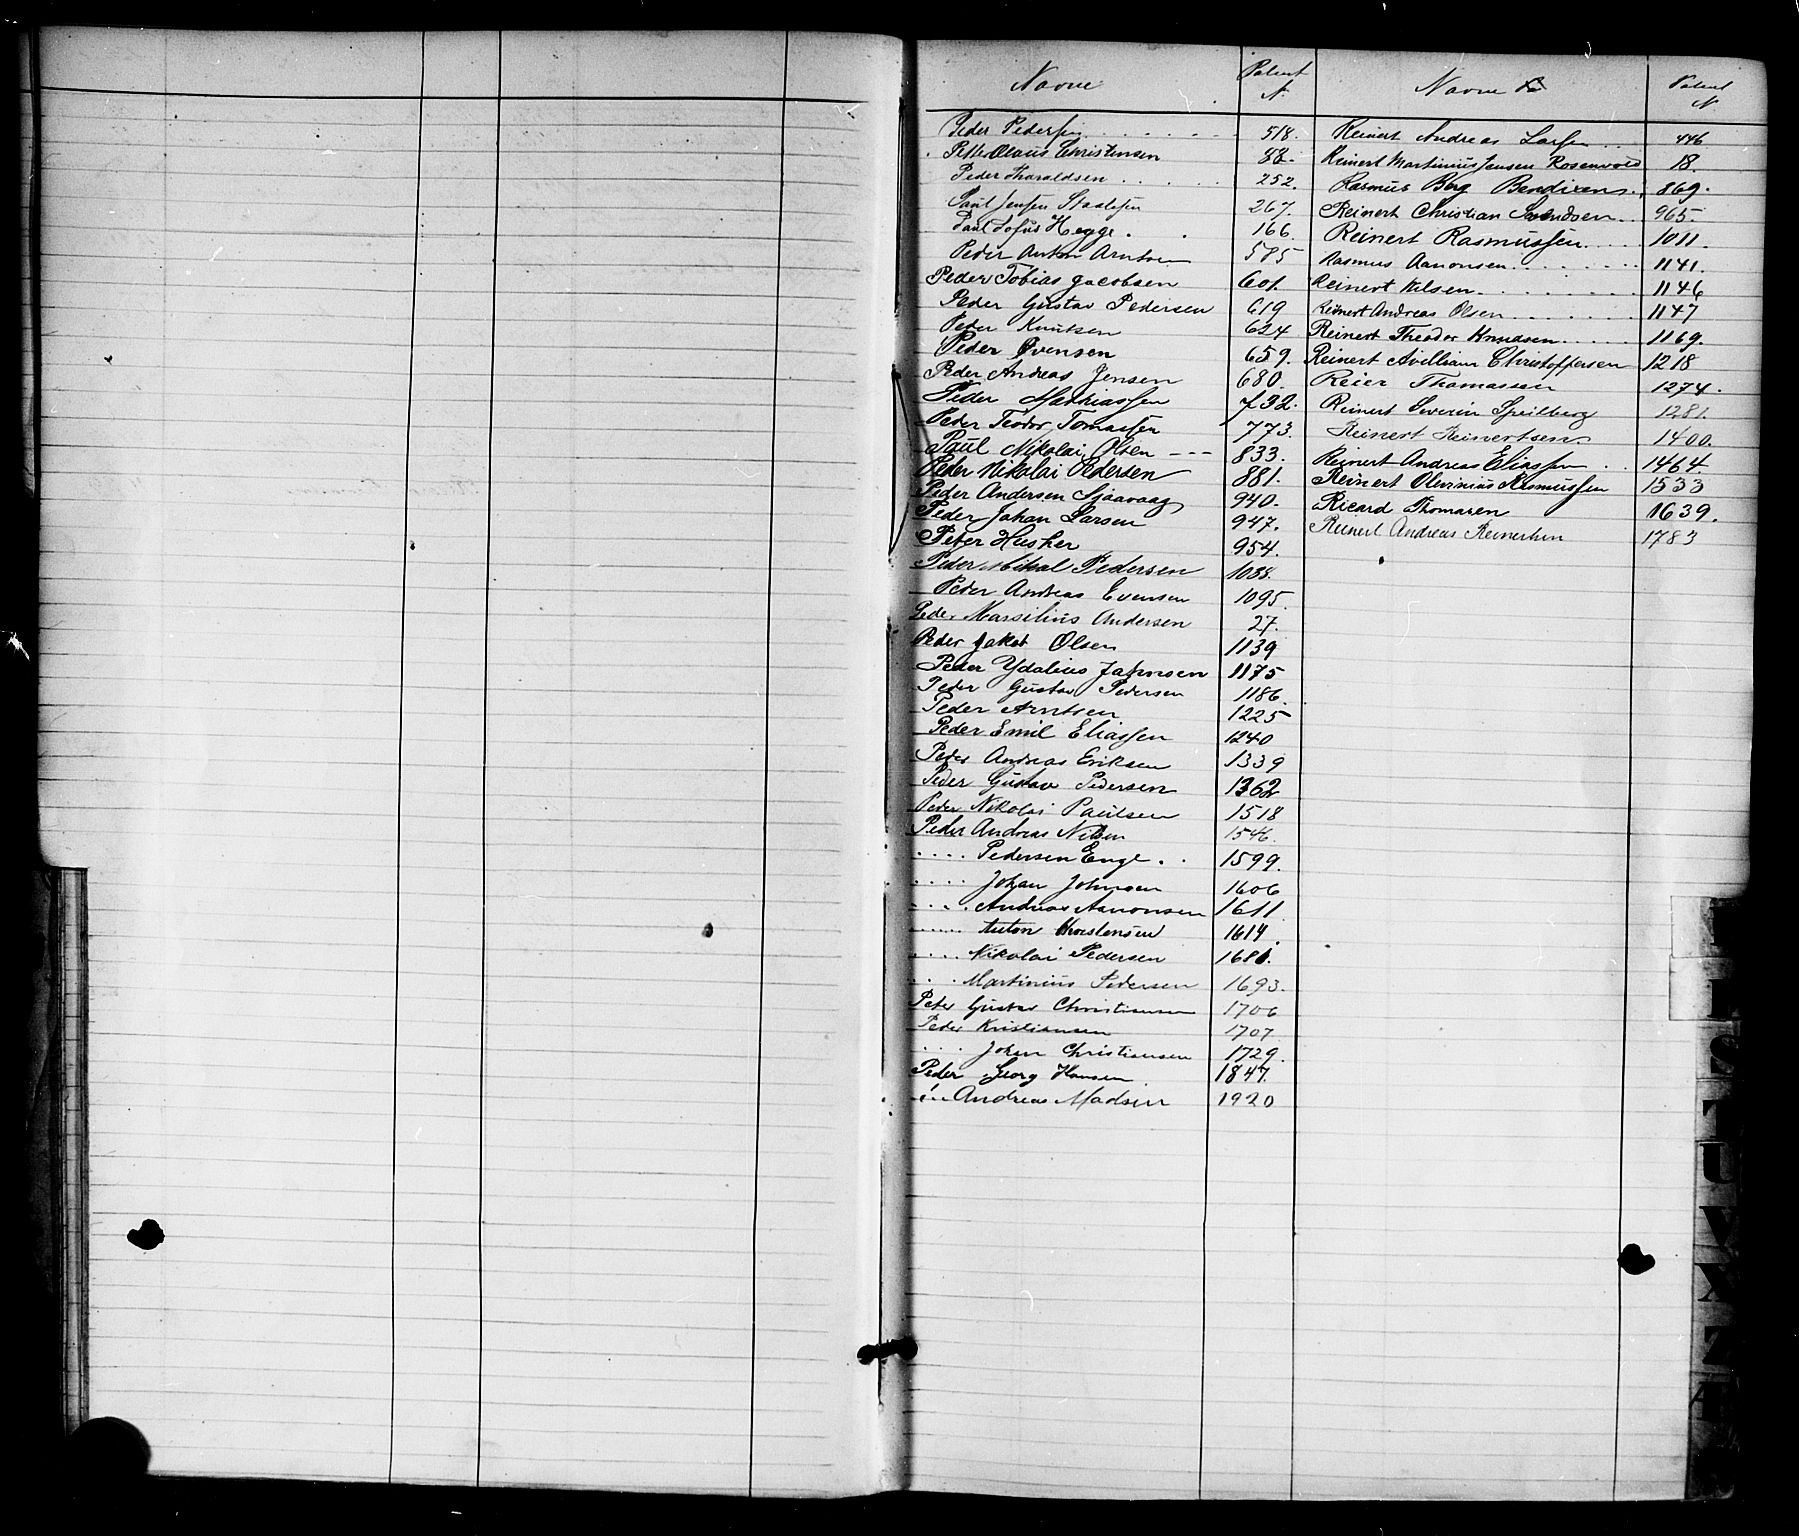 Navne Patent N.
Peder Pederssen 518.
Petter Olaus Christensen 88.
Peder Haraldsen 252.
Paul Jensen Staalesen 267.
Paul Tofus Hegge 166.
Peder Anton Arntsen 585
Peder Tobias Jacobsen 601.
Peder Gustav Pedersen 619
Peter Knutsen 624
Peder Evensen 659.
Peder Andreas Jensen 680.
Peder Mathiassen 732.
Peder Teodor Tomassen 773.
Paul Nikolai Olsen --- 833.
Peder Nikolai Pedersen 881.
Peder Andersen Sjaavaag 940.
Peder Johan Larsen 947.
Peter Husher 954.
Peder Mikal Pedersen 1038.
Peder Andreas Evensen 1095.
Peder Marselius Andersen 27.
Peder Jakob Olsen 1139
Peder Ydalius Jahnsen 1175
Peder Gustav Pedersen 1186.
Peder Arntsen 1225
Peder Emil Eliassen 1240
Peder Andreas Eriksen 1339
Peder Gustav Pedersen 1362
Peder Nikolai Paulsen 1518
Peder Andreas Nilsen 1546.
.... Pedersen Enge . . 1599.
.... Johan Johnsen 1606
.... Andreas Aanonsen 1611
...... Anton Thorstensen 1614.
.... Nikolai Pedersen 1681.
. . . Martinius Pedersen 1693.
Peter Gustav Christiansen 1706
Peder Kristiansen 1707
.... Johan Christiansen 1729.
Peder Georg Hansen 1847.
... Andreas Madsen 1920
Navne Patent N
Reinert Andreas Larsen .. 446
Reinert Martinius Jensen Rosenvold 18.
Rasmus Berg Bendixen 869.
Reinert Christian Svendsen 965
Reinert Rasmussen 1011.
Rasmus Aanonsen 1141.
Reinert Nilsen 1146
Reinert Andreas Olsen 1147
Reinert Theodor Knudsen 1169.
Reinert Avilliam Christoffersen 1218
Reier Thomassen 1274.
Reinert Severin Speilberg 1281.
Reinert Reinertsen 1400.
Reinert Andreas Eliassen 1464
Reinert Olevinius Rasmussen 1533
Ricard Thomasen 1639.
Reinert Andreas Reinertsen 1783
S
T
U
V
X
Z